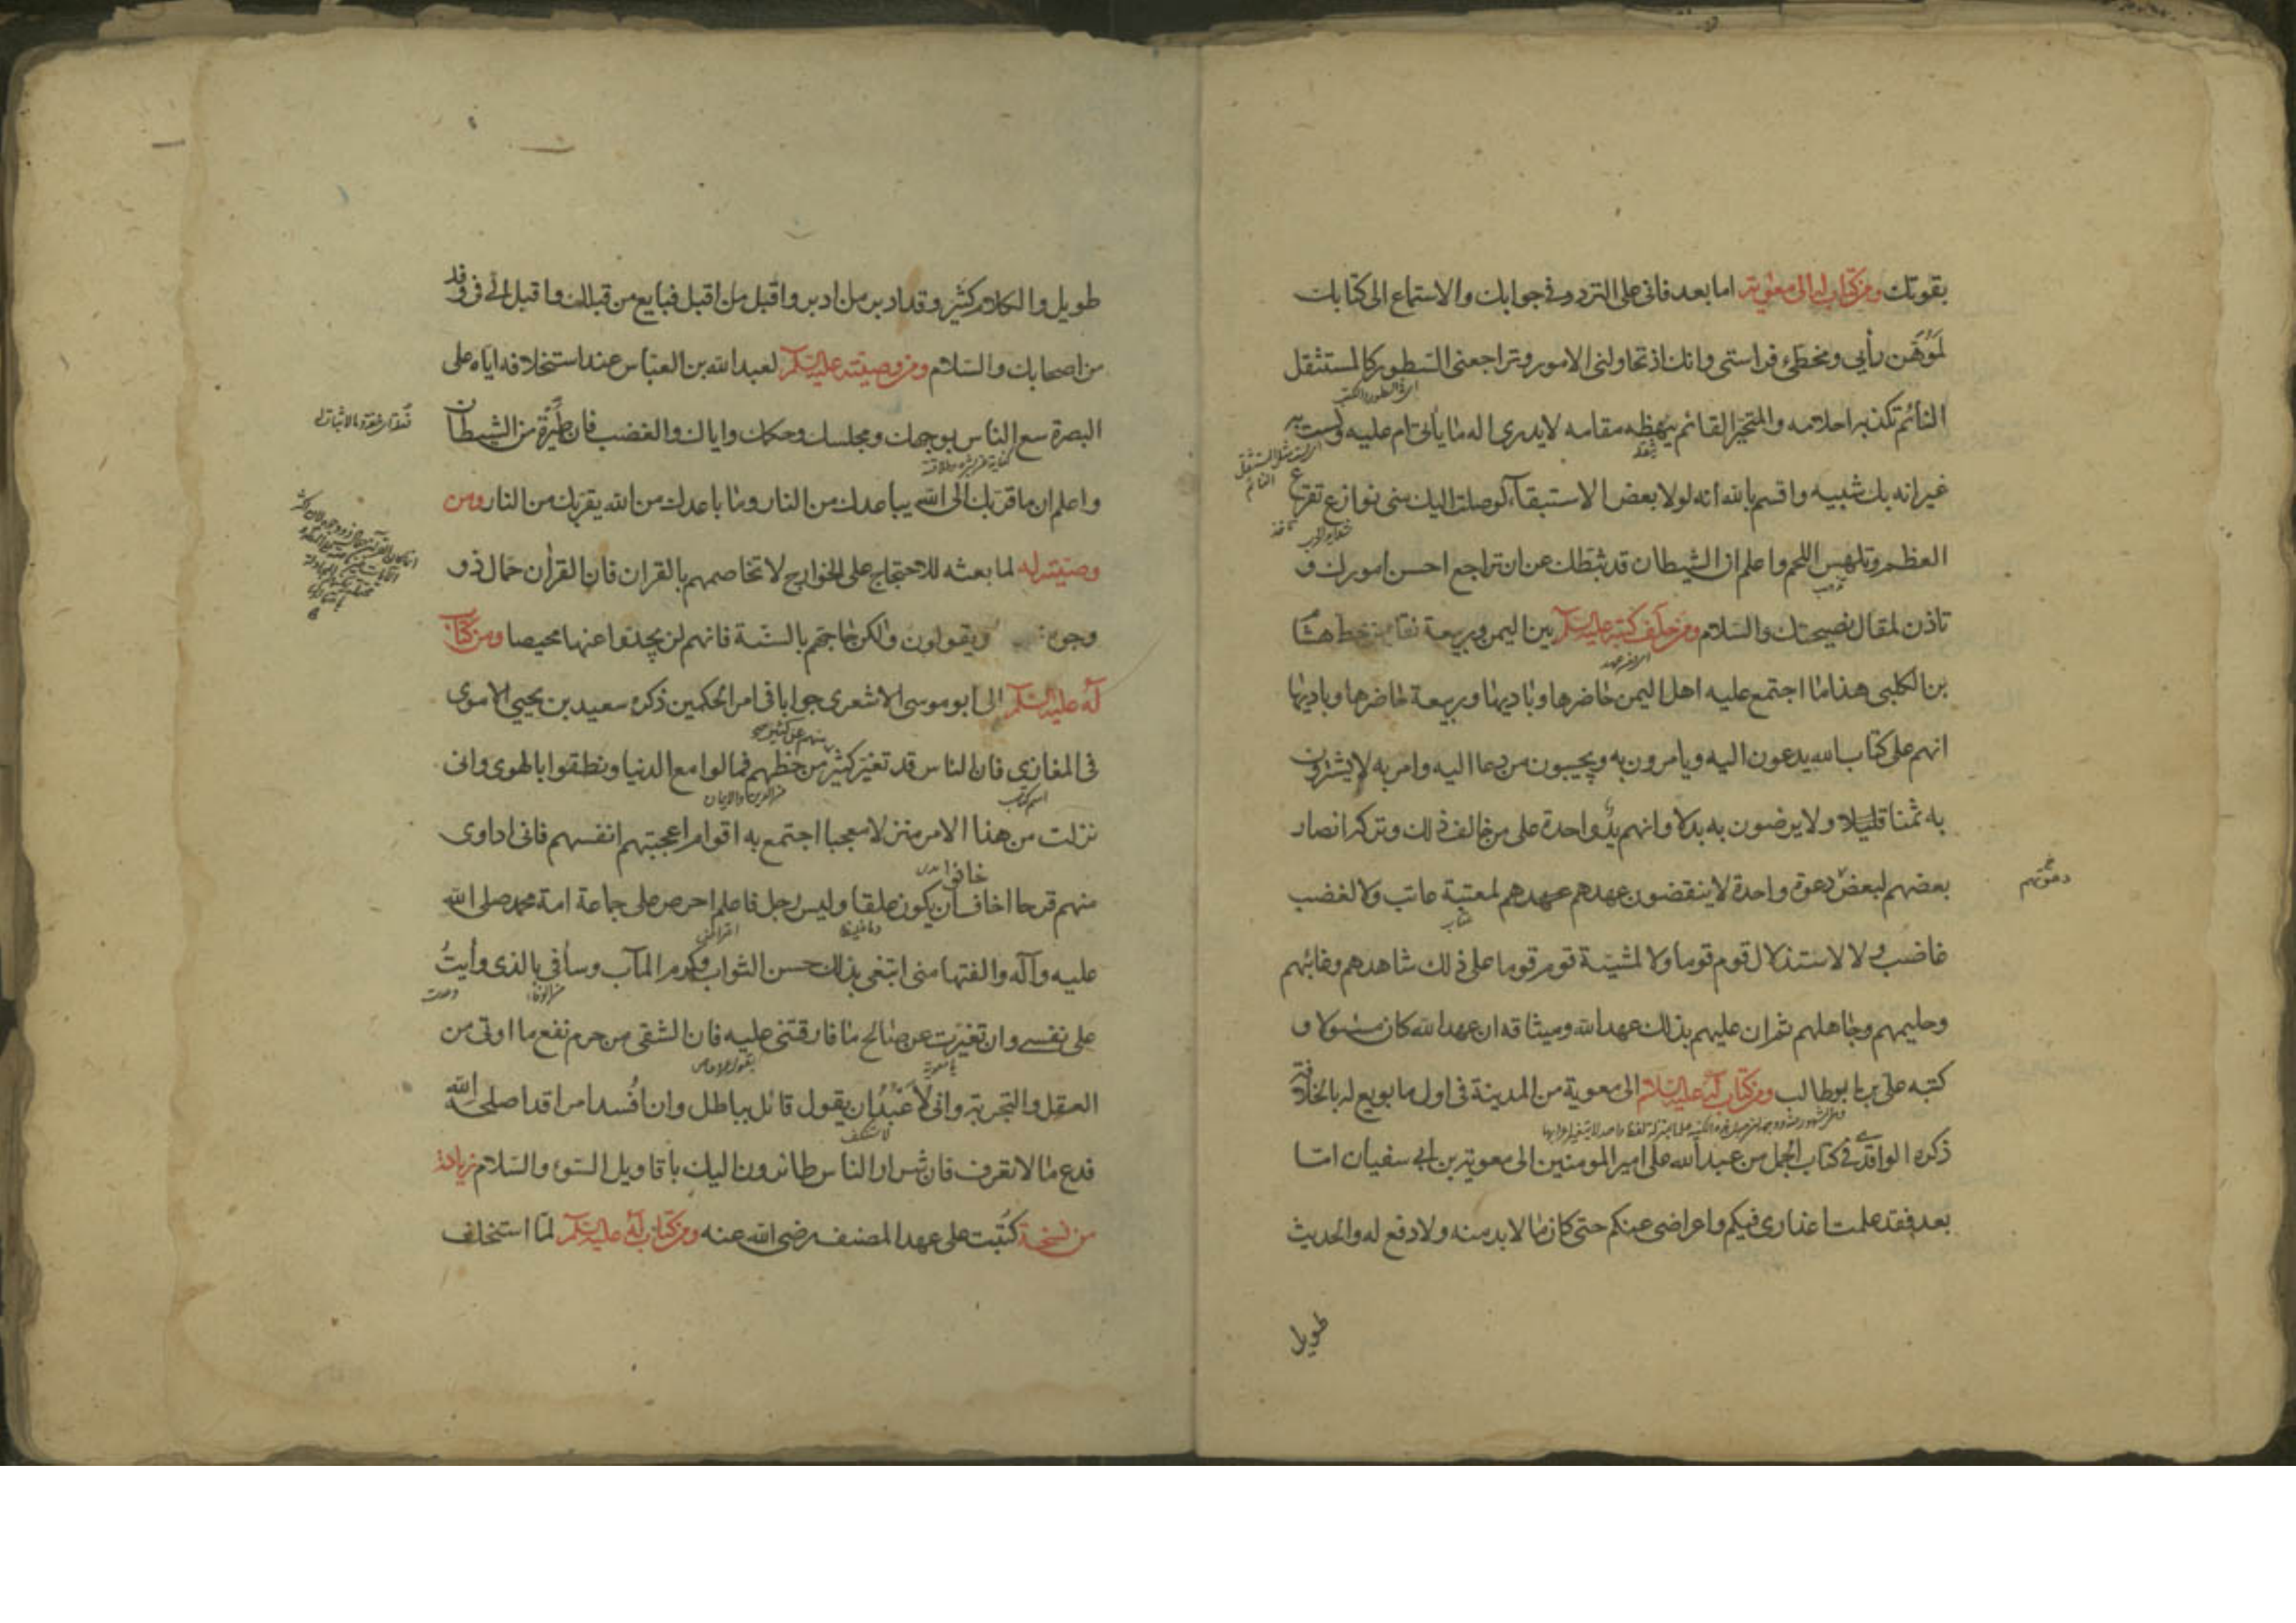 بقوتك ومن كتاب له الى معوية اما بعد فانى على التردد فى جوابك والاستماع الى كتابك
لموهن رأيى ومخطئ فراستى وانك اذ تحاولنى الامور وتراجعنى السطور كالمستثقل
النائم تكذبه احلامه والمتحير القائم يبهظه مقامه لا يدرى اله ما يأتى ام عليه ولست به
غير انه بك شبيه واقسم بالله انه لولا بعض الاستبقآء لوصلت اليك منى نوازع تقرع
العظم وتلهس اللحم واعلم ان الشيطان قد ثبطك عن ان تراجع احسن امورك و
تاذن لمقال نصيحتك والسلام ومن حلف كتبه عليه السلام بين اليمن وربيعة نقل من خط هشام
بن الكلبى هذا ما اجتمع عليه اهل اليمن حاضرها وباديها وربيعة حاضرها وباديها
انهم على كتاب الله يدعون اليه ويامرون به ويجيبون من دعا اليه وامر به لا يشترون
به ثمنا قليلا ولا يرضون به بدلا وانهم يد واحدة على من خالف ذلك وتركه انصار
بعضهم لبعض دعوة واحدة لا ينقضون عهدهم لمعتبة عاتب ولا لغضب
دعوتهم
غاضب ولا لاستذلال قوم قوما ولا لمشيئة قوم قوما على ذلك شاهدهم وغائبهم
وحليمهم وجاهلهم ثم ان عليهم بذلك عهد الله وميثاقه ان عهد الله كان مسئولا و
كتبه على بن ابوطالب ومن كتاب له عليه السلام الى معوية من المدينة فى اول ما بويع له بالخلافة
ذكره الواقدى فى كتاب الجمل من عبد الله على امير المومنين الى معوية بن ابى سفيان اما
بعد فقد علمت اعذارى فيكم واعراضى عنكم حتى كان ما لا بد منه ولا دفع له والحديث
طويل
طويل والكلام كثير وقد ادبر من ادبر واقبل من اقبل فبايع من قبلك واقبل الى فى وفد
من اصحابك والسلام ومن وصيته عليه السلام لعبد الله بن العباس عند استخلافه اياه على
البصرة سع الناس بوجهك ومجلسك وحكمك واياك والغضب فانه طيرة من الشيطان
واعلم ان ما قربك الى الله يباعدك من النار وما باعدك من الله يقربك من النار ومن
وصيته له لما بعثه للاحتجاج على الخوارج لا تخاصمهم بالقران فان القران حمال ذو
وجوه ويقولون ولكن حاجهم بالسنة فانهم لن يجدوا عنها محيصا ومن كتاب
له عليه السلام الى ابو موسى الاشعرى جوابا فى امر الحكمين ذكره سعيد بن يحيى الاموى
فى المغازى فان الناس قد تغير كثير منهم عن كثير من حظهم فمالوا مع الدنيا ونطقوا بالهوى وانى
نزلت من هذا الامر منزلا معجبا اجتمع به اقوام اعجبتهم انفسهم فانى اداوى
منهم قرحا اخاف ان يكون علقا وليس رجل فاعلم احرص على جماعة امة محمد صلى الله
عليه وآله والفتها منى ابتغى بذلك حسن الثواب وكرم المآب وسأفى بالذى وأيت
على نفسى وان تغيرت عن صالح ما فارقتنى عليه فان الشقى من حرم نفع ما اوتى من
العقل والتجربة وانى لأعبد ان يقول قائل بباطل وان افسد امرا قد اصلحه الله
فدع ما لا تعرف فان شرار الناس طائرون اليك باقاويل السوء والسلام زيادة
من نسخة كتبت على عهد المصنف رضى الله عنه ومن كتاب له عليه السلام لما استخلف